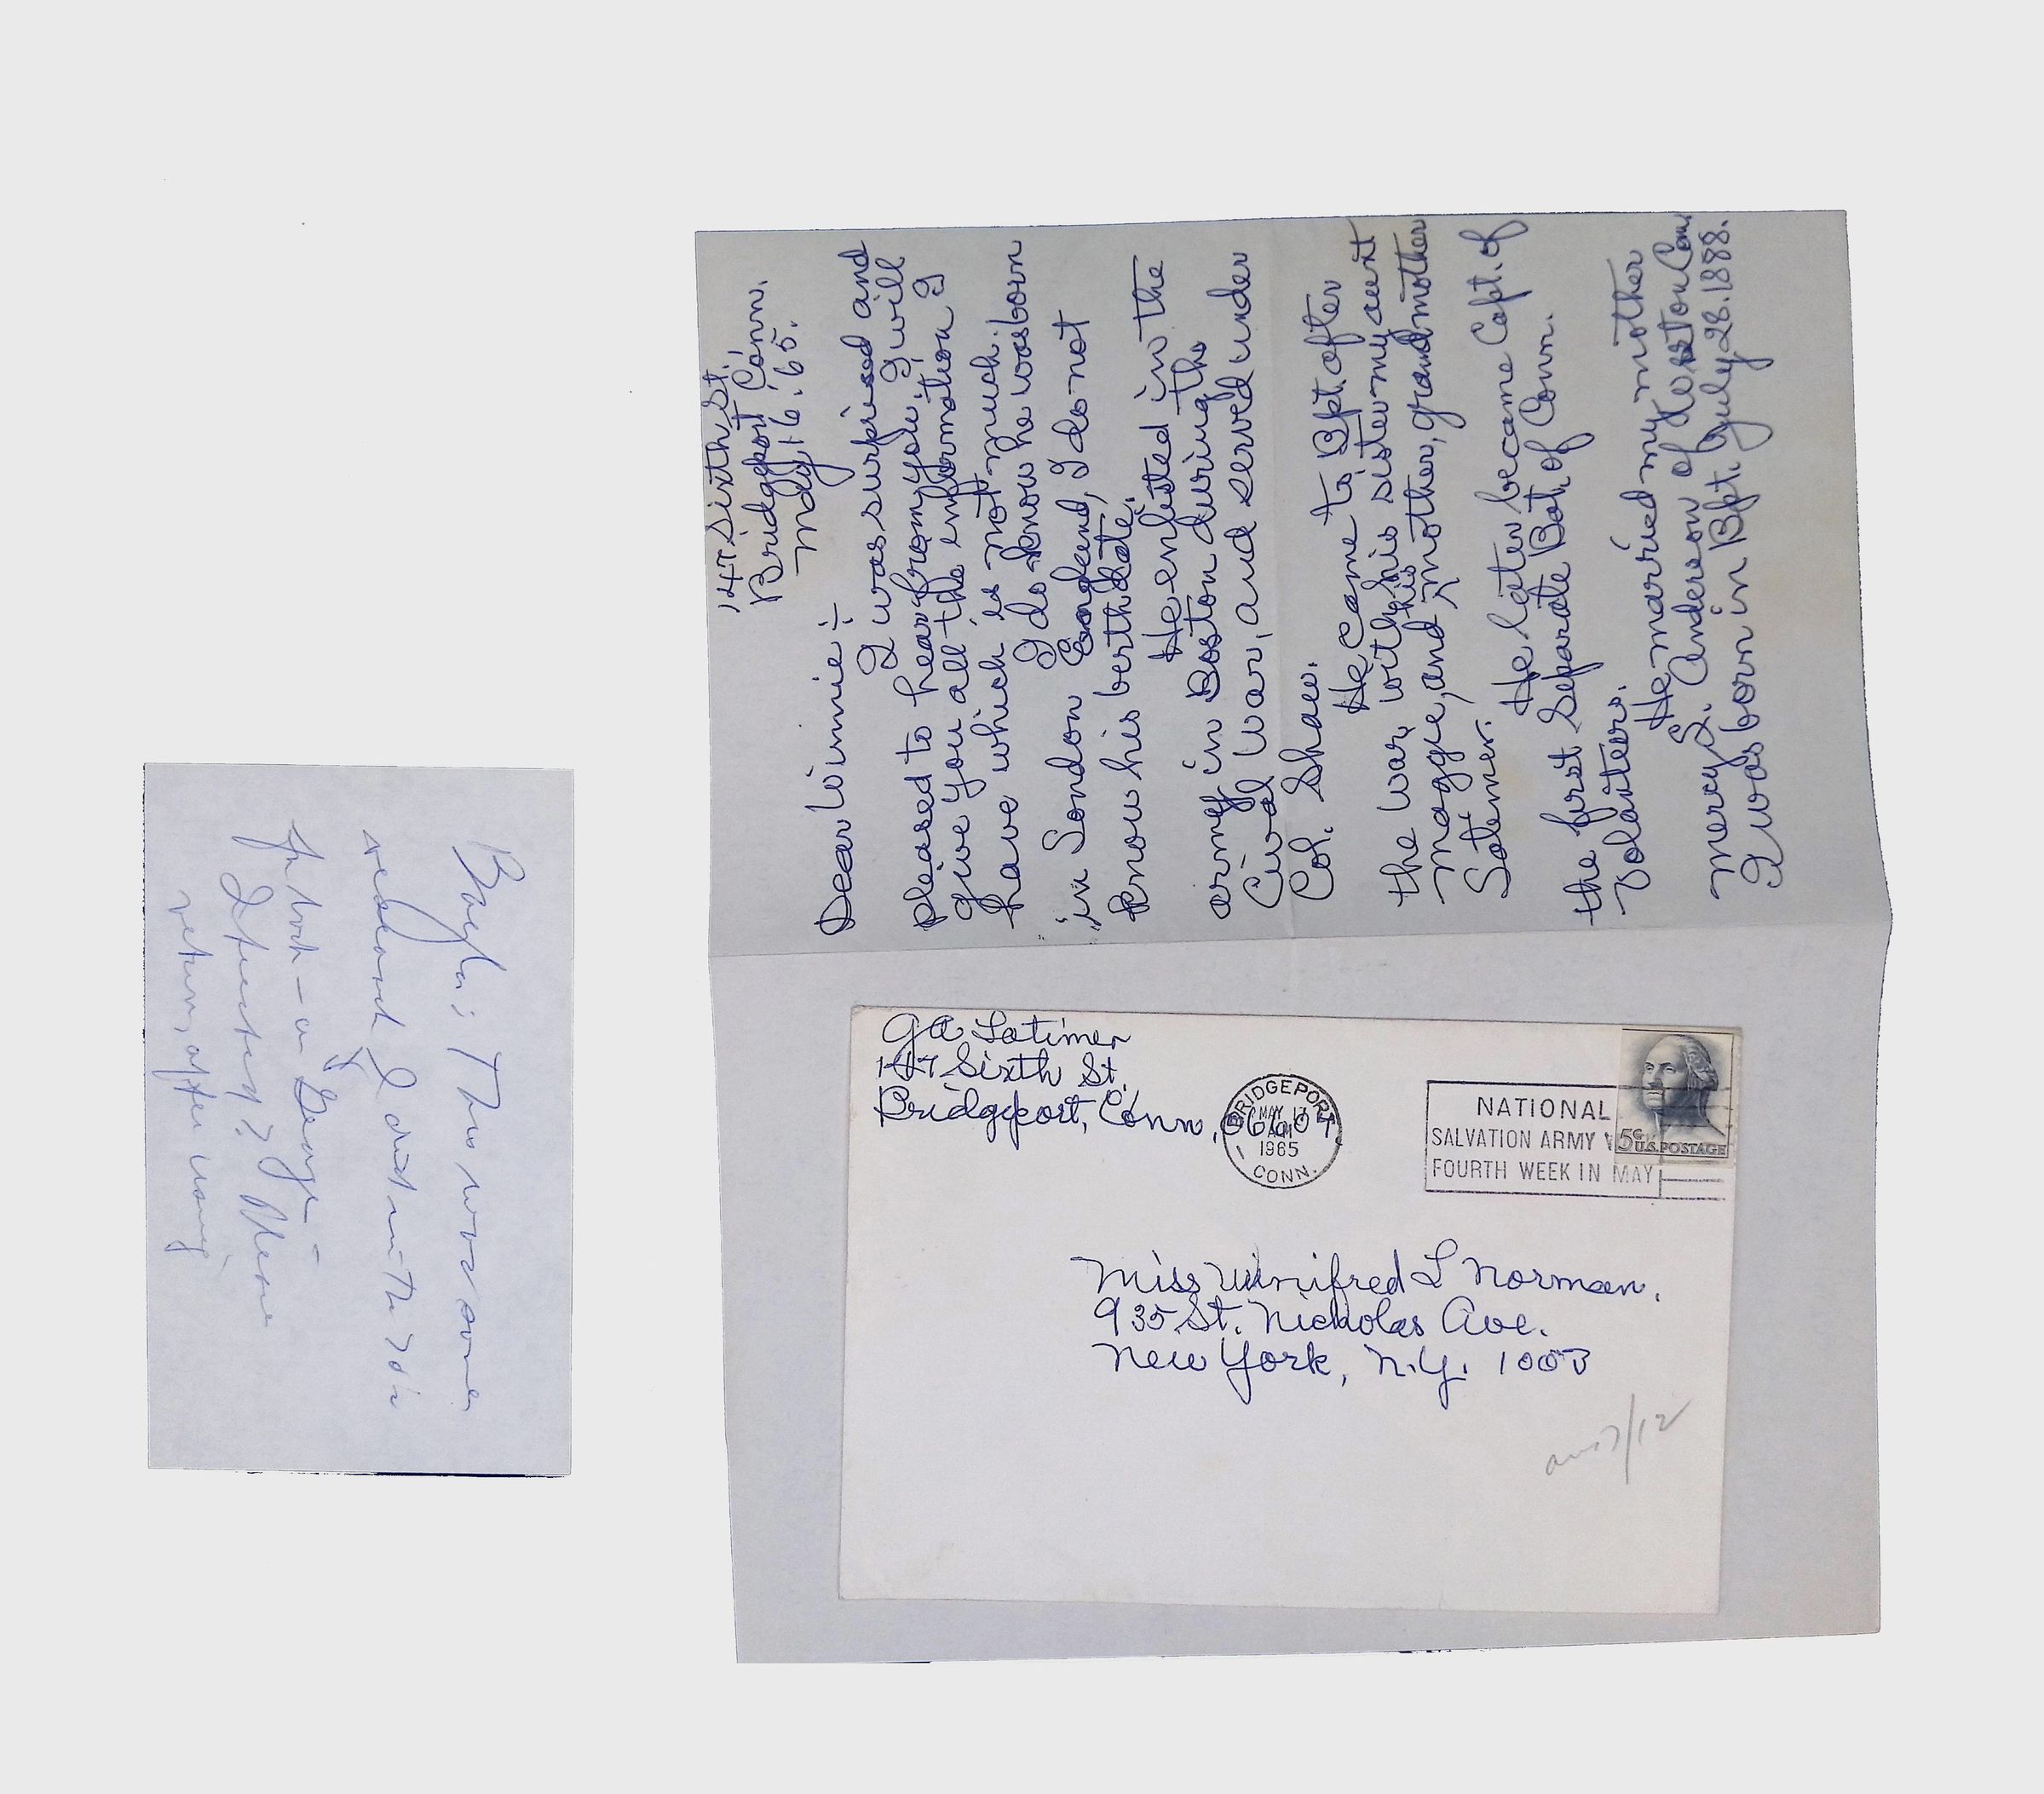 147 Sixth St.
Bridgeport Conn.
May, 16, 65.
Dear Winnie :-
I was surprised and
pleased to hear from you. I will
give you all the information I
have which is not much.
I do know he was born
in London England, I do not
know his berth date.
He enlisted in the
army in Boston during the
Civel War, and served under
Col. Shaw.
He came to Bpt. after
the war, with his sister my aunt
Maggie, and his mother, grandmother
Latimer.
He later became Capt. of
the first Separate Bat. of Conn.
Volunteers.
He married my mother
Mercy S. Anderson of Weston Conn
I was born in Bpt. July 28. 1888.
GA Latimer
147 Sixth St.
Bridgeport, Conn, 06607
BRIDGEPORT
MAY 17
1965
CONN.
NATIONAL
SALVATION ARMY
FOURTH WEEK IN MAY
5¢
U.S. POSTAGE
Miss Winifred L Norman.
935 St. Nicholas Ave.
New York, N.Y. 1003
7/12
This was some
research I did in the 70's
for book - on George -
Interesting? Please
return, after using